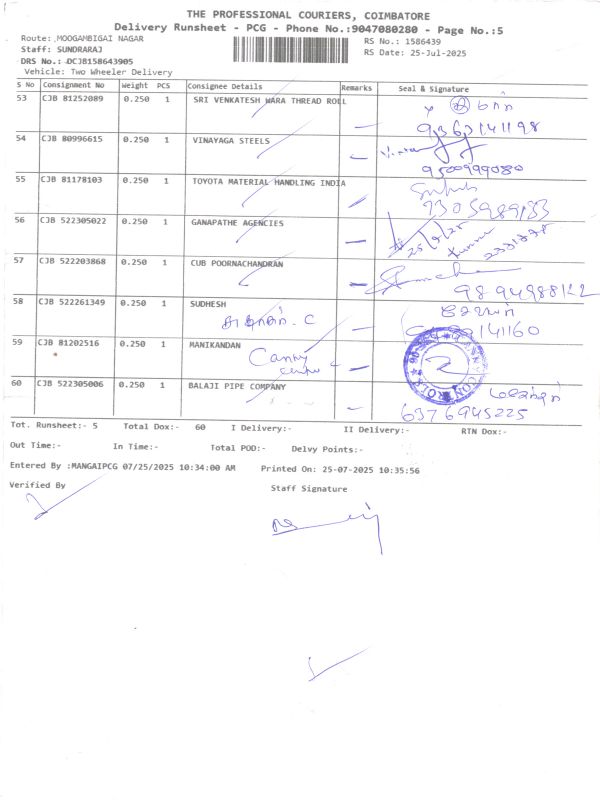 THE PROFESSIONAL COURIERS, COIMBATORE
Delivery Runsheet - PCG - Phone No.:9047080280 - Page No.:5
Route:.MOOGAMBIGAI NAGAR
RS No.: 1586439
Staff: SUNDRARAJ
RS Date: 25-Jul-2025
DRS No.: DCJB158643905
Vehicle: Two Wheeler Delivery
S No Consignment No Weight PCS Consignee Details Remarks Seal & Signature
53 CJB 81252089 0.250 1 SRI VENKATESH WARA THREAD ROLL
9363141198
54 CJB 80996615 0.250 1 VINAYAGA STEELS
9500999080
55 CJB 81178103 0.250 1 TOYOTA MATERIAL HANDLING INDIA
7305989133
56 CJB 522305022 0.250 1 GANAPATHE AGENCIES
25/7/25
57 CJB 522203868 0.250 1 CUB POORNACHANDRAN
58 CJB 522261349 0.250 1 SUDHESH
59 CJB 81202516 0.250 1 MANIKANDAN
60 CJB 522305006 0.250 1 BALAJI PIPE COMPANY
6376945225
Tot. Runsheet:- 5 Total Dox:- 60 I Delivery:- II Delivery:- RTN Dox:-
Out Time:- In Time:- Total POD:- Delvy Points:-
Entered By :MANGAIPCG 07/25/2025 10:34:00 AM Printed On: 25-07-2025 10:35:56
Verified By Staff Signature